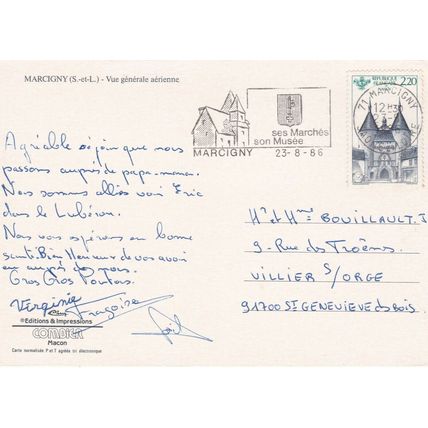 MARCIGNY (S.-et-L.) - Vue générale aérienne
RÉPUBLIQUE FRANÇAISE
2,20
71 MARCIGNY
12H30
ses Marchés
son Musée
MARCIGNY 23-8-86
Agréable séjour que nous
passons auprès de papa-maman.
Nous sommes allés voir Eric
dans le Lubéron.
Nous vous espérons en bonne
santé. Bien Heureux de vous avoir
eu auprès de nous.
Gros Gros Poutous.
Virginie Françoise
Joël
Mr et Mme BOUILLAULT. J
9. Rue des Troënes
VILLIER S/ORGE
91700 St GENEVIEVE ds BOIS.
Editions & Impressions
COMBIER
Macon
Carte normalisée P et T agréée tri électronique